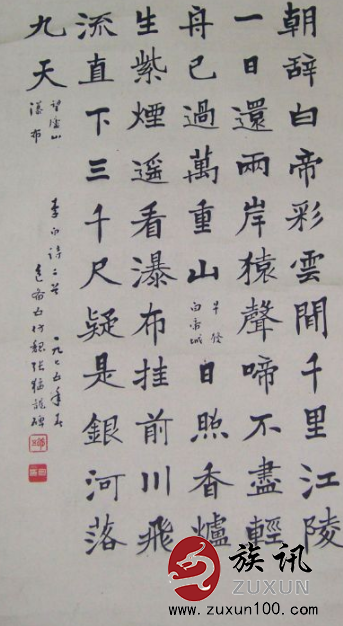 朝辭白帝彩雲間千里江陵
一日還兩岸猿聲啼不盡輕
舟已過萬重山
早發
白帝城
日照香爐
生紫煙遥看瀑布挂前川飛
流直下三千尺疑是銀河落
九天
望廬山
瀑布
李白詩二首 一九七五年
仿魏張猛龍碑
族讯
ZUXUN
www.zuxun100.com